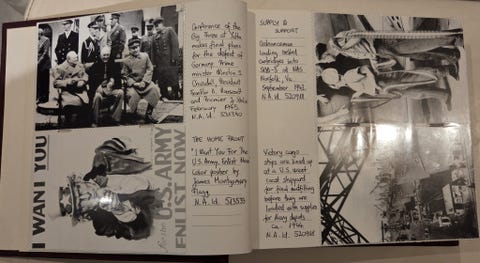 Conference of the
Big Three at Yalta
makes final plans
for the defeat of
Germany. Prime
minister Winston S.
Churchill, President
Franklin D. Roosevelt
and Premier J. Stalin
February 1945
THE HOME FRONT
"I Want You For The
U.S. Army, Enlist Now"
Color poster by
James Montgomery
Flagg
N.A. Id. 513533
I WANT YOU
for the U.S. ARMY
ENLIST NOW
SUPPLY &
SUPPORT
loading belted
cartridges into
at NAS
Norfolk, Va.
September 1942
N.A. Id.
Victory cargo
ships are lined up
at a U.S. west
coast shipyard
for final outfitting
before they are
loaded with supplies
for Navy depots...
Ca. 1944
N.A. Id.